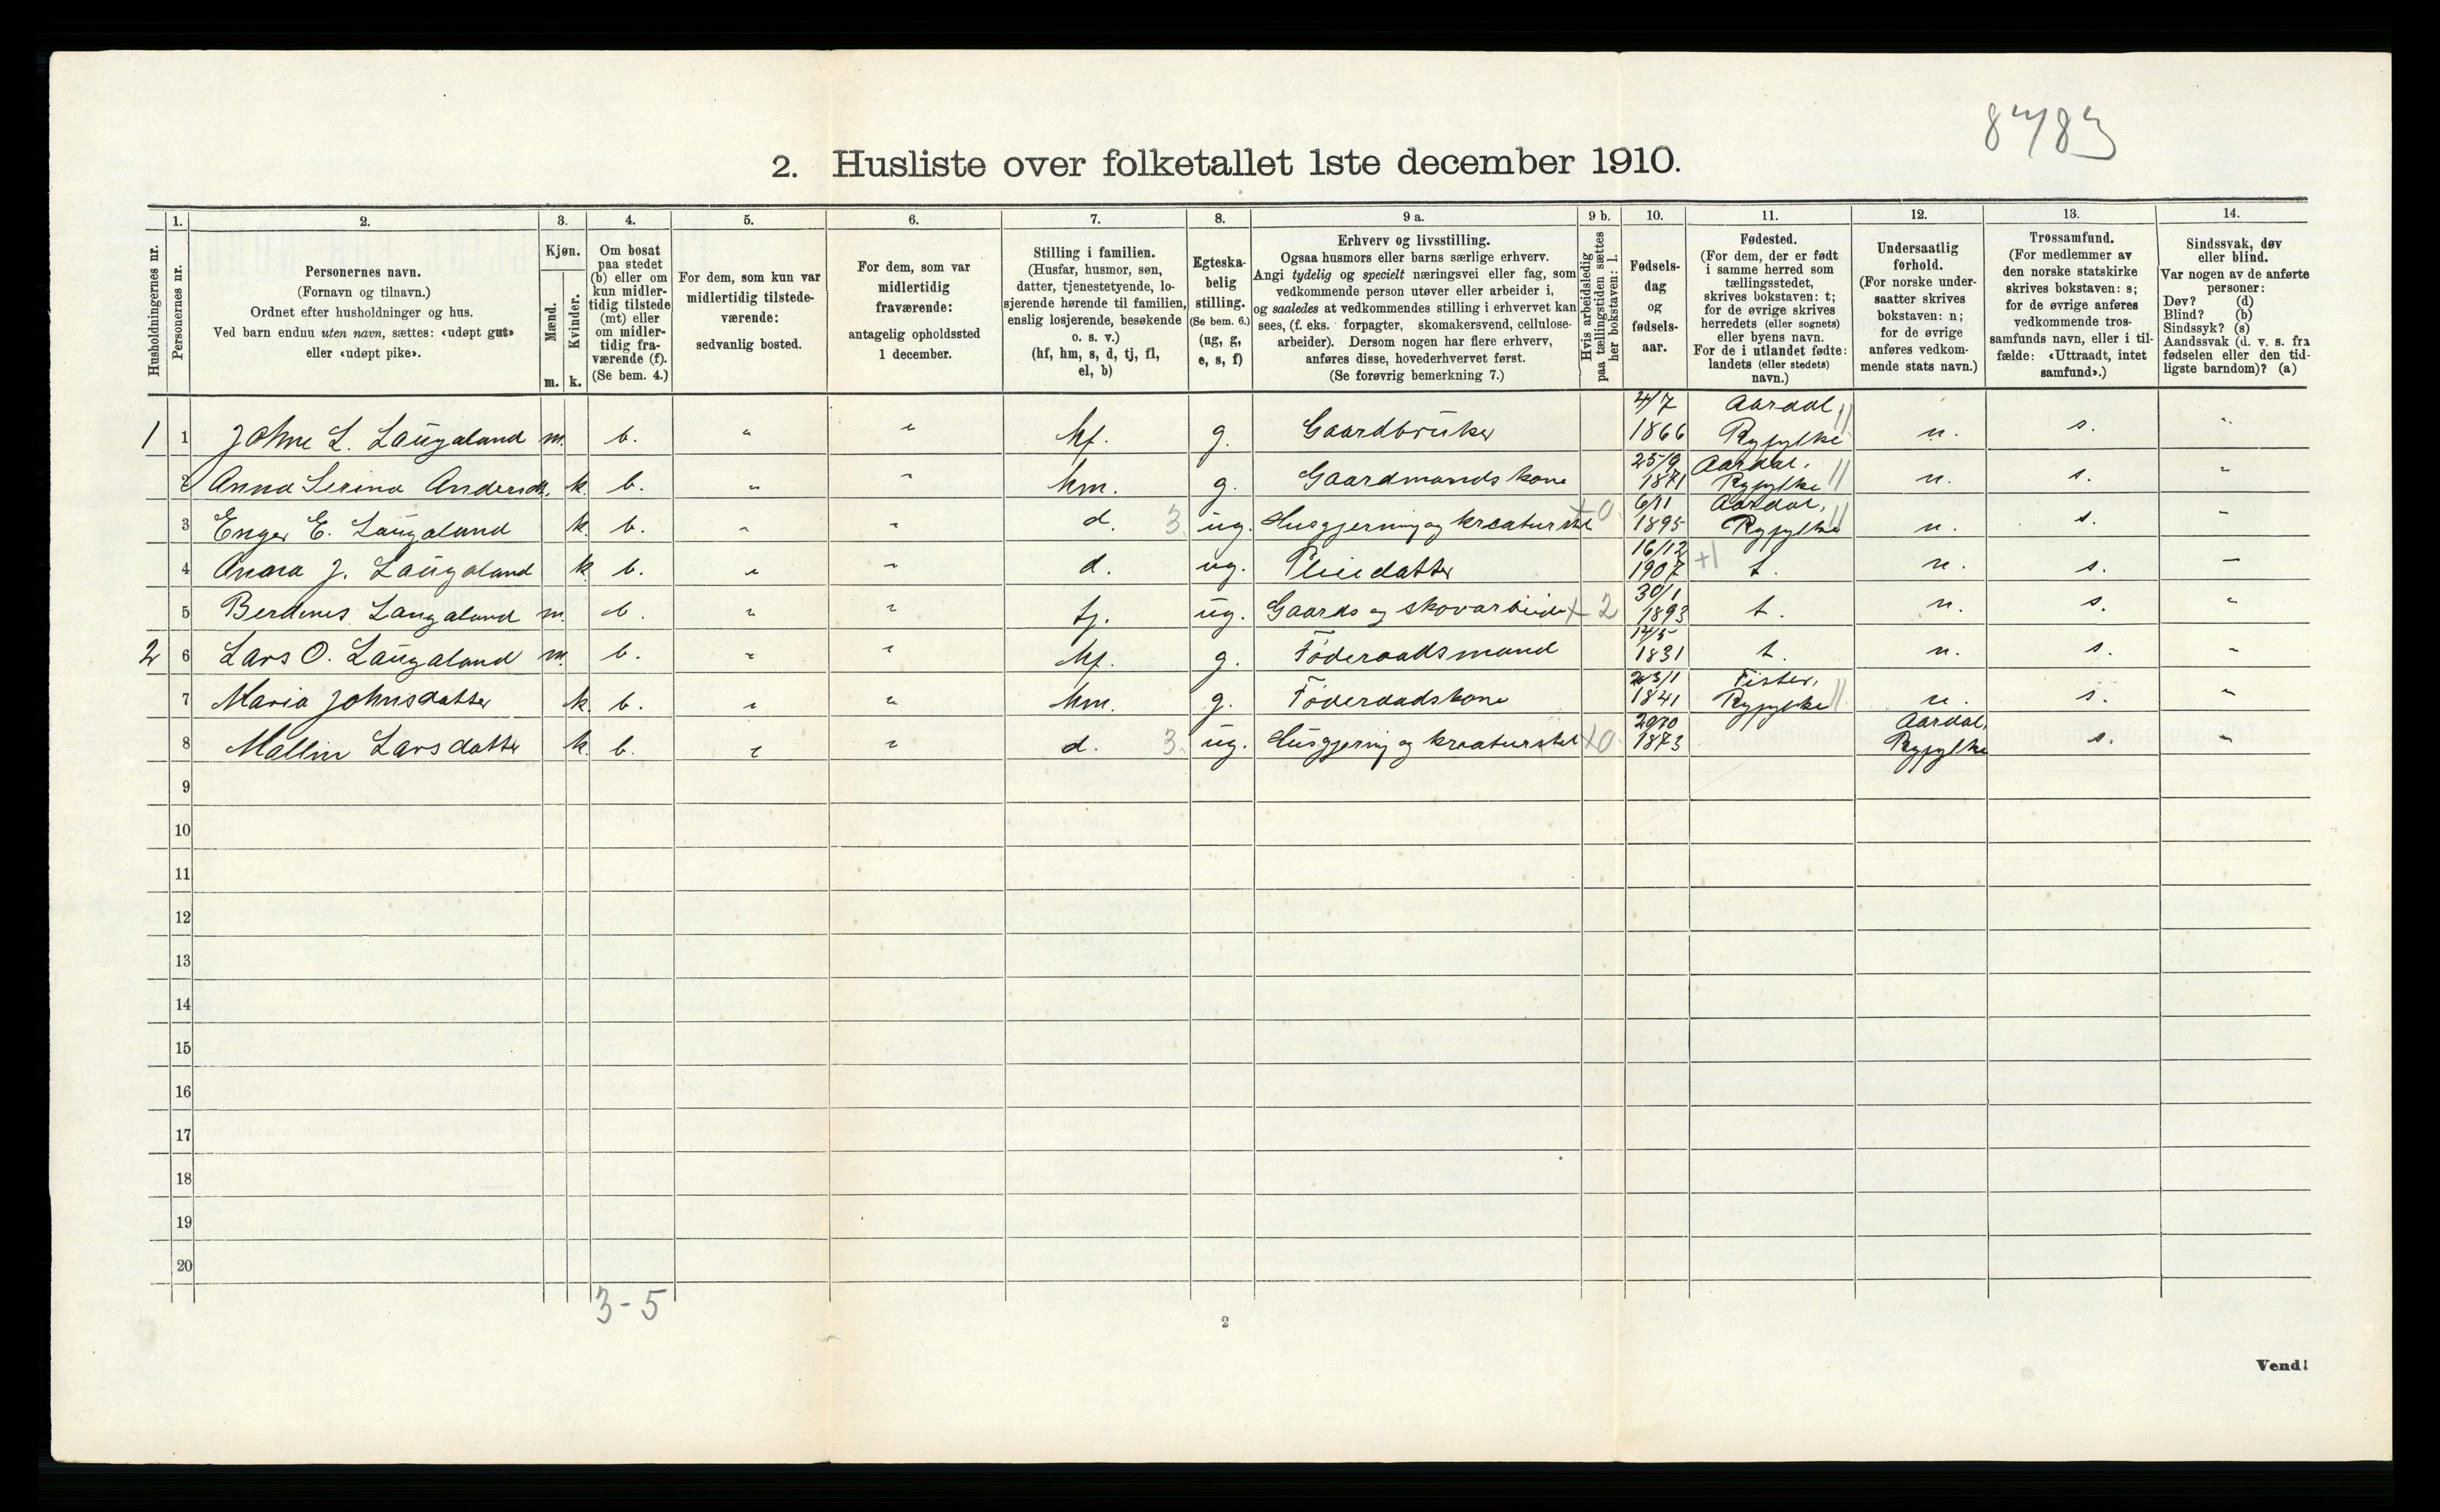 8783
2. Husliste over folketallet 1ste december 1910.
Husholdningernes nr.
1.
Personernes nr.
2.
Personernes navn.
(Fornavn og tilnavn.)
Ordnet efter husholdninger og hus.
Ved barn endnu uten navn, sættes: «udøpt gut»
eller «udøpt pike».
3.
Kjøn.
Mænd.
Kvinder.
m. k.
4.
Om bosat
paa stedet
(b) eller om
kun midler-
tidig tilstede
(mt) eller
om midler-
tidig fra-
værende (f).
(Se bem. 4.)
5.
For dem, som kun var
midlertidig tilstede-
værende:
sedvanlig bosted.
6.
For dem, som var
midlertidig
fraværende:
antagelig opholdssted
1 december.
7.
Stilling i familien.
(Husfar, husmor, søn,
datter, tjenestetyende, lo-
sjerende hørende til familien,
enslig losjerende, besøkende
o. s. v.)
(hf, hm, s, d, tj, fl,
el, b)
8.
Egteska-
belig
stilling.
(Se bem. 6.)
(ug, g,
e, s, f)
9 a.
Erhverv og livsstilling.
Ogsaa husmors eller barns særlige erhverv.
Angi tydelig og specielt næringsvei eller fag, som
vedkommende person utøver eller arbeider i,
og saaledes at vedkommendes stilling i erhvervet kan
sees, (f. eks. forpagter, skomakersvend, cellulose-
arbeider). Dersom nogen har flere erhverv,
anføres disse, hovederhvervet først.
(Se forøvrig bemerkning 7.)
9 b.
Hvis arbeidsledig
paa tællingstiden sættes
her bokstaven: l.
10.
Fødsels-
dag
og
fødsels-
aar.
11.
Fødested.
(For dem, der er født
i samme herred som
tællingsstedet,
skrives bokstaven: t;
for de øvrige skrives
herredets (eller sognets)
eller byens navn.
For de i utlandet fødte:
landets (eller stedets)
navn.)
12.
Undersaatlig
forhold.
(For norske under-
saatter skrives
bokstaven: n;
for de øvrige
anføres vedkom-
mende stats navn.)
13.
Trossamfund.
(For medlemmer av
den norske statskirke
skrives bokstaven: s;
for de øvrige anføres
vedkommende tros-
samfunds navn, eller i til-
fælde: «Uttraadt, intet
samfund».)
14.
Sindssvak, døv
eller blind.
Var nogen av de anførte
personer:
Døv? (d)
Blind? (b)
Sindssyk? (s)
Aandssvak (d. v. s. fra
fødselen eller den tid-
ligste barndom)? (a)
1 1 Johne L. Laugaland m. b. " " hf. g. Gaardbruker 4/7 1866 Aardal, Ryfylke n. s. "
2 Anna Serina Andersdt. k. b. " " hm. g. Gaardmandskone 25/9 1871 Aardal, Ryfylke n. s. "
3 Enger E. Laugaland k. b. " " d. 3 ug. Husgjerning og kreaturstel +0 6/11 1895 Aardal, Ryfylke n. s. "
4 Anna J. Laugaland k b. " " d. ug. Pleiedatter 16/12 1907 +1 t. n. s. "
5 Berdines Laugaland m. b. " " tj. ug. Gaards og skovarbeider +2 30/1 1893 t. n. s. "
2 6 Lars O. Laugaland m. b. " " hf. g. Føderaadsmand 14/5 1831 t. n. s. "
7 Maria Johnsdatter k. b. " " hm. g. Føderaadskone 23/1 1841 Fister, Ryfylke n. s. "
8 Mallin Larsdatter k. b. " " d. 3 ug. Husgjerning og kreaturstel +0 29/10 1873 Aardal, Ryfylke s. "
9
10
11
12
13
14
15
16
17
18
19
20
3-5
2
Vend!